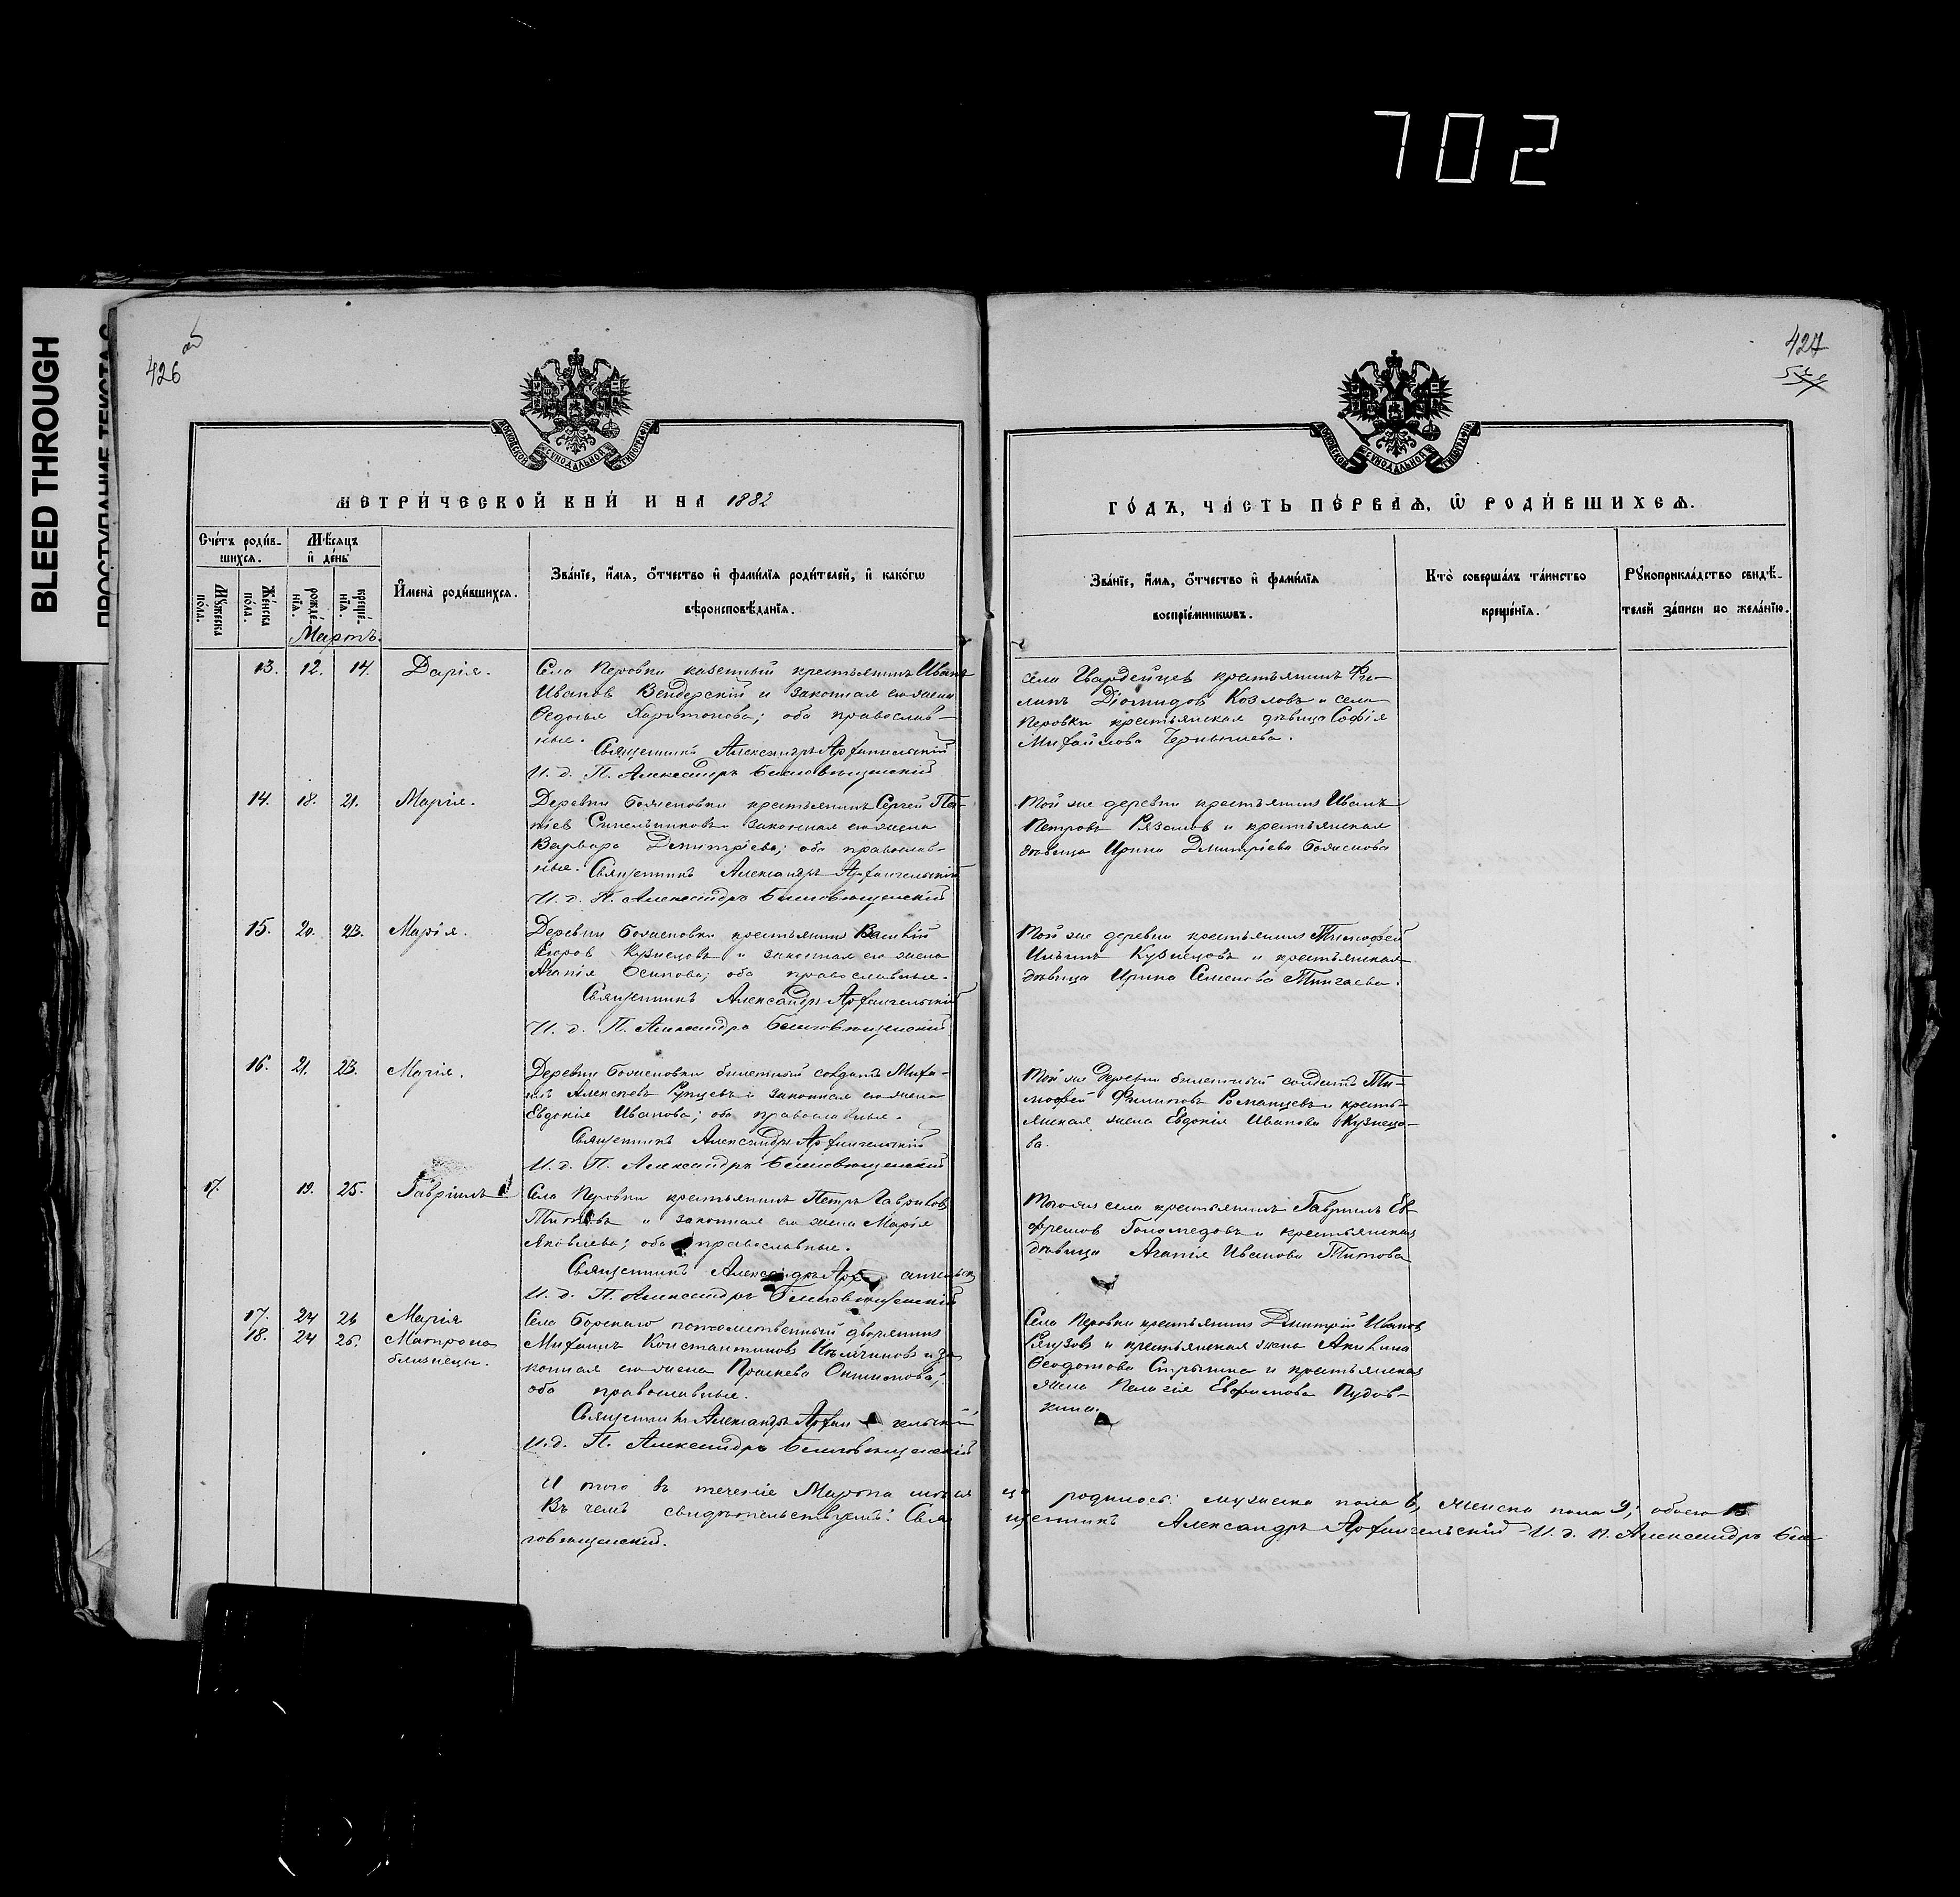 702
BLEED THROUGH
ПРОСТУПАНИЕ ТЕКСТА С
426 об
427
МОСКОВСКОЙ СѴНОДАЛЬНОЙ ТИПОГРАФІИ
МОСКОВСКОЙ СѴНОДАЛЬНОЙ ТИПОГРАФІИ
МЕТРИ́ЧЕСКОЙ КНИ́ И НА 1882
ГО́ДЪ, ЧА́СТЬ ПЕ́РВАѦ, Ѿ РОДИ́ВШИХСѦ.
Сче́тъ роди́в-
шихсѧ.
Мꙋ́жеска пола.
Же́нска пола.
Мѣ́сѧцъ
и҆ де́нь
рожде́-
нїѧ.
креще́-
нїѧ.
Мартъ.
И҆мена̀ роди́вшихсѧ.
Зва́нїе, и҆́мѧ, ѻ҆́тчество и҆ фамѝлїѧ роди́телей, и҆ како́гѡ
вѣроисповѣ́данїѧ.
Зва́нїе, и҆́мѧ, ѻ҆́тчество и҆ фами́лїѧ
воспрїе́мникѡвъ.
Кто̀ соверша́лъ та́инство
креще́нїѧ.
Рꙋкоприкла́дство свидѣ́-
телей за́писи по жела́нїю.
13. 12. 14. Дарія.
Села Перовки казенный крестьянинъ Иванъ
Ивановъ Вендерскій и законная его жена
Ѳедосья Харитонова; оба православ-
ные. Священникъ Александръ Архангельскій
И. д. П. Александръ Благовѣщенскій
села Гвардейцев крестьянинъ Фи-
липъ Діомидовъ Козловъ и села
Перовки крестьянская дѣвица Софія
Михайлова Чернышева.
14. 18. 21. Марія.
Деревни Боженовки крестьянинъ Сергей
Синельниковъ и законная его жена
Варвара Дмитріева; оба православ-
ные. Священникъ Александръ Архангельскій
И. д. П. Александръ Благовѣщенскій
Той же деревни крестьянинъ Иванъ
Петровъ Рязановъ и крестьянская
дѣвица Ирина Дмитріева
15. 20. 23. Марія.
Деревни Боженовки крестьянинъ Василій
Егоровъ Кузнецовъ и законная его жена
Агапія Осипова; оба православные.
Священникъ Александръ Архангельскій
И. д. П. Александръ Благовѣщенскій
Той же деревни крестьянинъ Тимоѳей
Ильинъ Кузнецовъ и крестьянская
дѣвица Ирина Семенова
16. 21. 23. Марія.
Деревни Боженовки билетный солдатъ Миха-
илъ Алексѣевъ и законная его жена
Евдокія Иванова; оба православные.
Священникъ Александръ Архангельскій
И. д. П. Александръ Благовѣщенскій
Той же деревни билетный солдатъ Ти-
моѳей Филиповъ Романцевъ и кресть-
янская жена Евдокія Иванова Кузнецо-
ва.
17. 19. 25. Гавріилъ
Села Перовки крестьянинъ Петръ Гавриловъ
Титовъ и законная его жена Марія
Яковлева; оба православные.
Священникъ Александръ Архангельск
И. д. П. Александръ Благовѣщенскій
Тогоже села крестьянинъ Гавриилъ Ев-
фремов и крестьянская
дѣвица Агапія Иванова Титова
17. 24 26 Марія
18. 24 26. Матрона
близнецы.
Села Борскаго потомственный дворянинъ
Михаилъ Константиновъ и за-
конная его жена Прасковья
оба православные.
Священникъ Александръ Архангельскій
И. д. П. Александръ Благовѣщенскій
Села Перовки крестьянинъ Дмитрій Ивановъ
и крестьянская жена Акилина
Ѳеодотова и крестьянская
жена Пелагія Пудов-
кина.
И того въ теченіе Марта мѣся ца родилось: мужеска пола 6, женска пола 9; обоего 15
Въ чемъ свидѣтельствуемъ: Свя щенникъ Александръ Архангельскій И. д. П. Александръ Бла-
говѣщенскій.